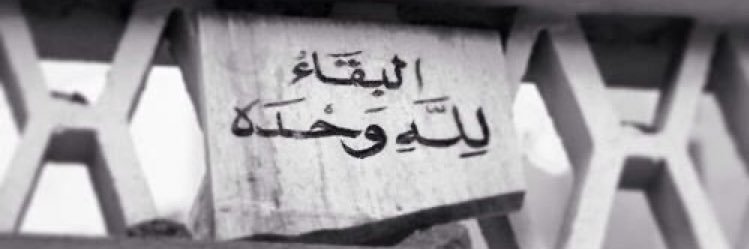 البقَاءُ
لِلَّهِ وَحْدَه